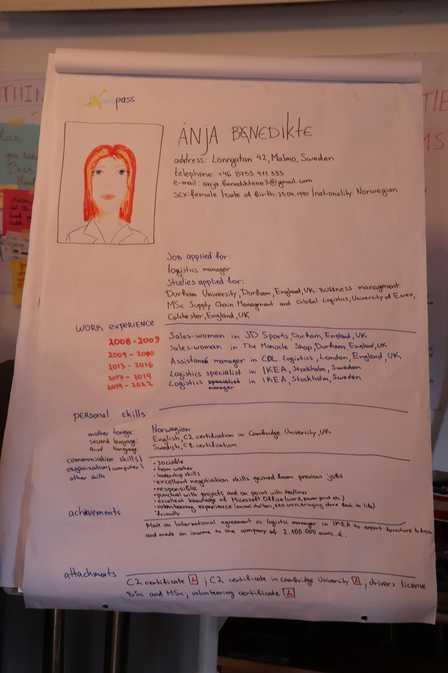 pass
ANJA BENEDIKTE
address: Lonngatan 42, Malmo, Sweden
telephone: +46 8753 911 333
e-mail:
sex: female | date of birth: | nationality: Norwegian
Job applied for:
logistics manager
Studies applied for:
Durham University, Durham, England, UK Business management
MSc Supply Chain Managment and Global Logistics, University of Essex,
Colchester, England, UK
WORK EXPERIENCE
2008-2009 Sales-woman in JD Sports, Durham, England, UK
Sales-woman in The Miracle Shop, Durham, England, UK
2013-2016 Assistant manager in CDL Logistics, London, England, UK
Logistics specialist in IKEA, Stockholm, Sweden
2019-2022 Logistics manager in IKEA, Stockholm, Sweden
personal skills
mother tongue: Norwegian
second language: English, C2 certification in Cambridge University, UK
third language: Swedish, C2 certification
communication skills/ - sociable
organisation/computer/ - team worker
other skills - leadership skills
- excellent negotiation skills gained from previous jobs
- responsible
- punctual with projects and on point with
- excellent knowledge of Microsoft Office
- volunteering experience
achievments
Made an International agreement as logistic manager in IKEA to export furniture to
and made an income to the company of 2.100.000 euros
attachments
C2 certificate ; C2 certificate in Cambridge University , drivers license
BSc and MSc, volunteering certificate
THIN
TIE